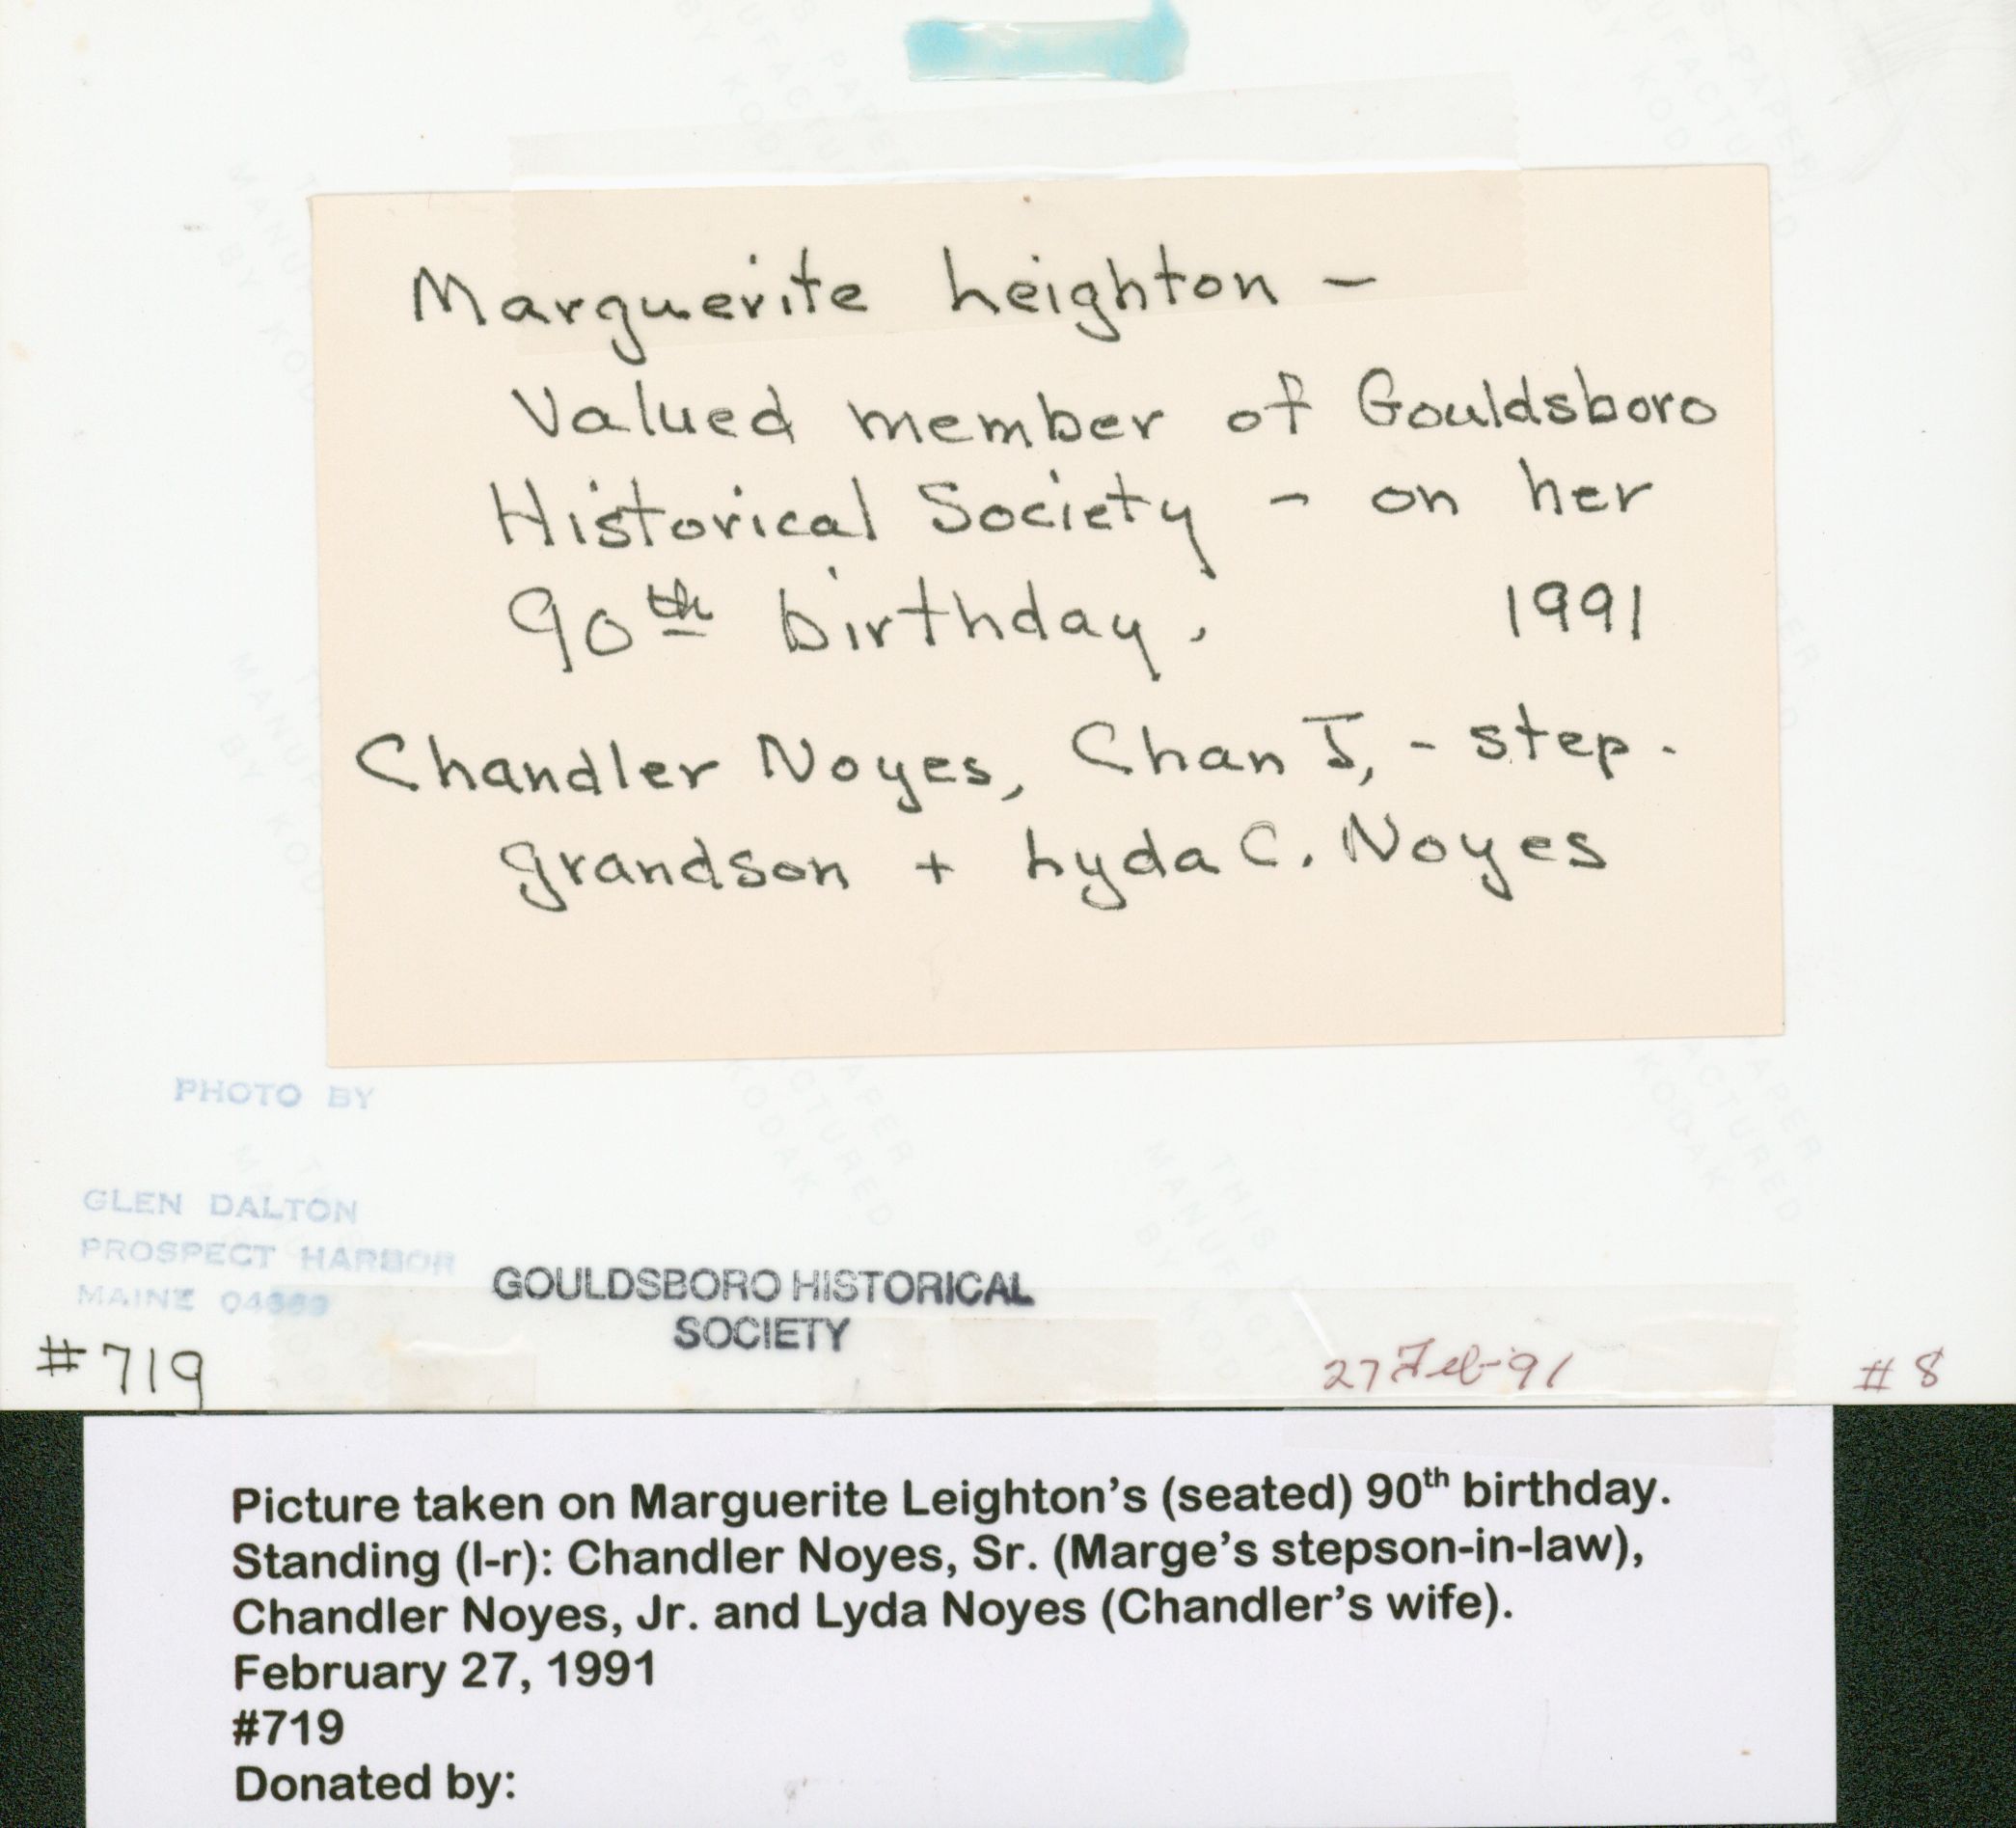 Marguerite Leighton –
Valued member of Gouldsboro
Historical Society – on her
90th birthday. 1991
Chandler Noyes, Chan J, - step-
grandson + Lyda C. Noyes
PHOTO BY
GLEN DALTON
PROSPECT HARBOR
MAINE
GOULDSBORO HISTORICAL
SOCIETY
#719
27 Feb-91
#8
Picture taken on Marguerite Leighton's (seated) 90th birthday.
Standing (l-r): Chandler Noyes, Sr. (Marge's stepson-in-law),
Chandler Noyes, Jr. and Lyda Noyes (Chandler's wife).
February 27, 1991
#719
Donated by: